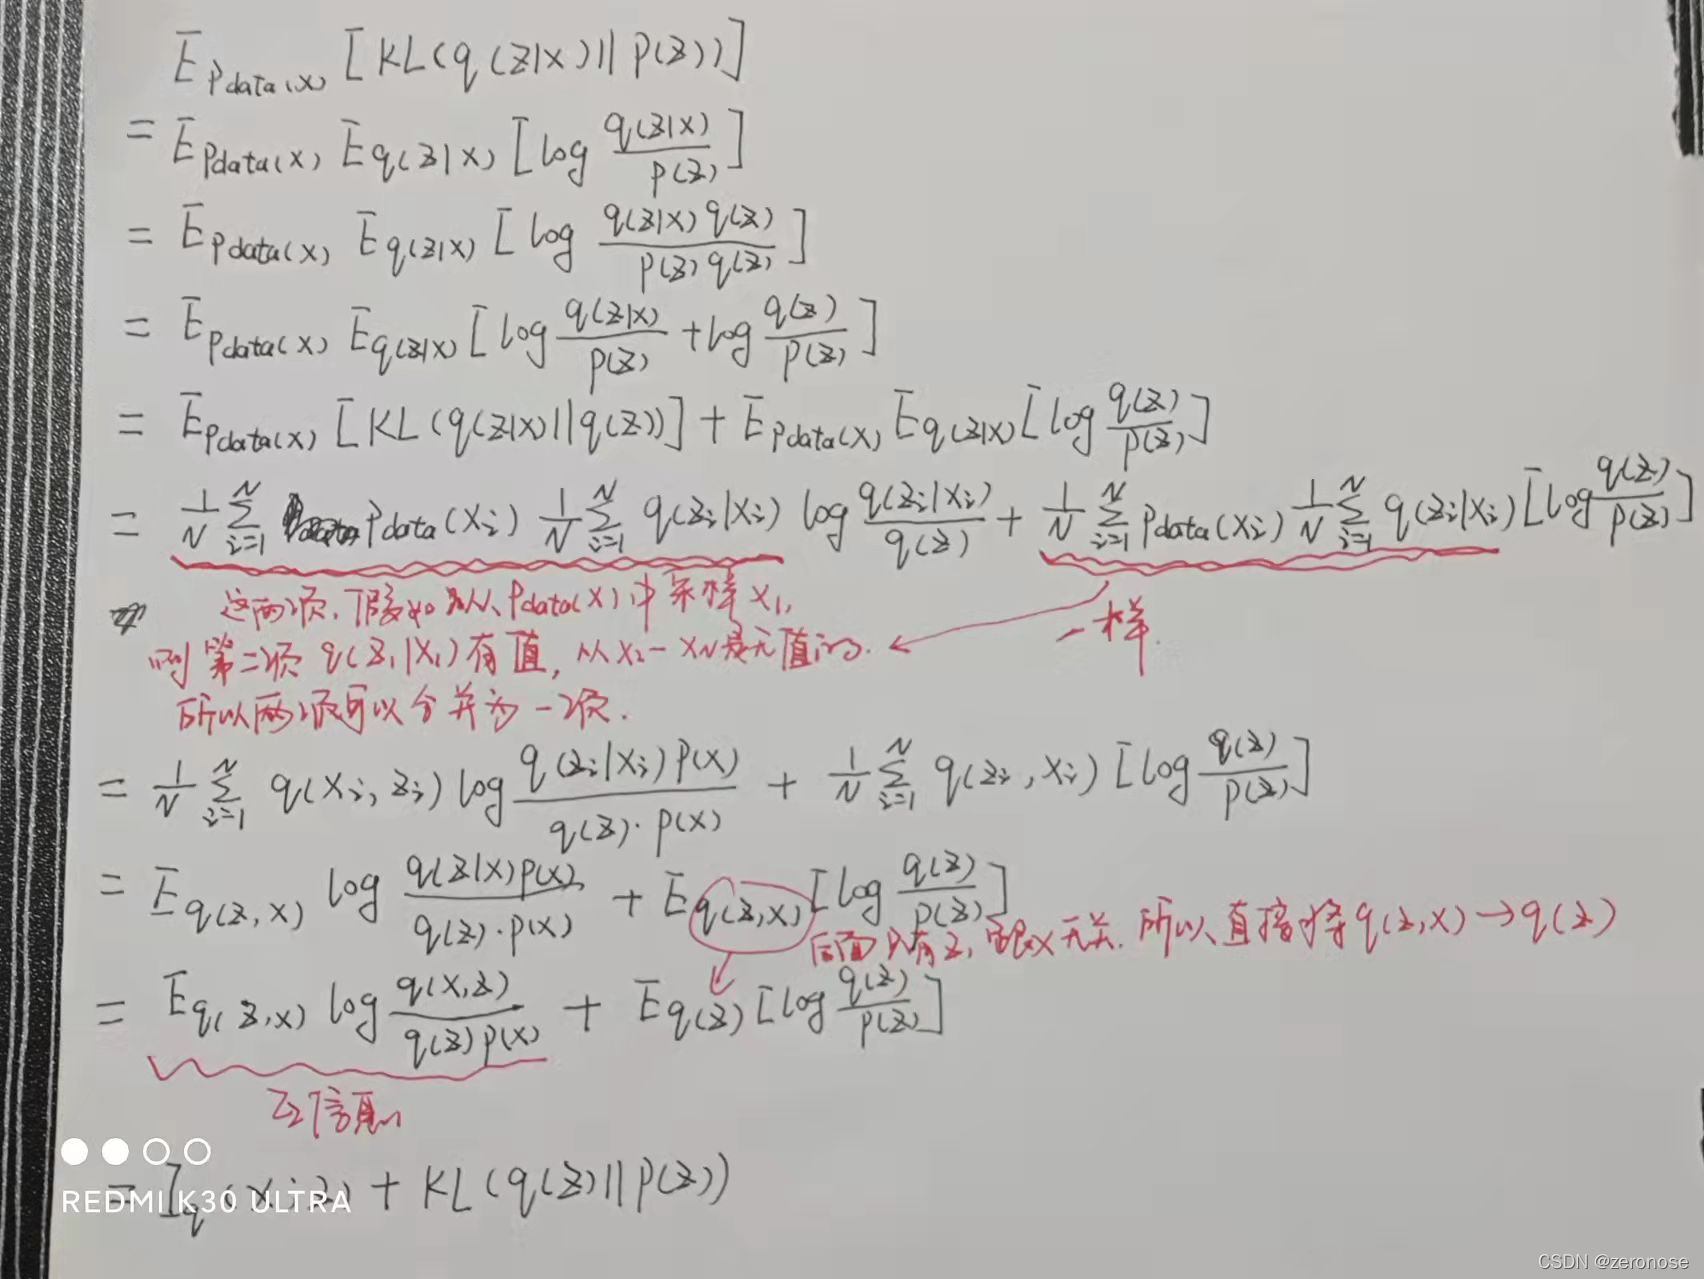 E_{Pdata(x)} [KL(q(z|x)||p(z))]
= E_{Pdata(x)} E_{q(z|x)} [log \frac{q(z|x)}{p(z)}]
= E_{Pdata(x)} E_{q(z|x)} [log \frac{q(z|x)q(z)}{p(z)q(z)}]
= E_{Pdata(x)} E_{q(z|x)} [log \frac{q(z|x)}{p(z)} + log \frac{q(z)}{p(z)}]
= E_{Pdata(x)} [KL(q(z|x)||q(z))] + E_{Pdata(x)} E_{q(z|x)} [log \frac{q(z)}{p(z)}]
= \frac{1}{N} \sum_{i=1}^{N} Pdata(x_i) \frac{1}{N} \sum_{i=1}^{N} q(z_i|x_i) log \frac{q(z_i|x_i)}{q(z)} + \frac{1}{N} \sum_{i=1}^{N} Pdata(x_i) \frac{1}{N} \sum_{i=1}^{N} q(z_i|x_i) [log \frac{q(z)}{p(z)}]
这两项,假如从Pdata(x)中采样x_1,
一样.
则第二项q(z_1|x_1)有值,从x_2-x_N是无值的.
所以两项可以合并为一项.
= \frac{1}{N} \sum_{i=1}^{N} q(x_i,z_i) log \frac{q(z_i|x_i)p(x)}{q(z)·p(x)} + \frac{1}{N} \sum_{i=1}^{N} q(z_i,x_i) [log \frac{q(z)}{p(z)}]
= E_{q(z,x)} log \frac{q(z|x)p(x)}{q(z)·p(x)} + E_{q(z,x)} [log \frac{q(z)}{p(z)}]
后面只有z,跟x无关.所以直接将q(z,x)→q(z)
= E_{q(z,x)} log \frac{q(x,z)}{q(z)p(x)} + E_{q(z)} [log \frac{q(z)}{p(z)}]
互信息
= I_q(x;z) + KL(q(z)||p(z))
REDMI K30 ULTRA
CSDN @zeronose